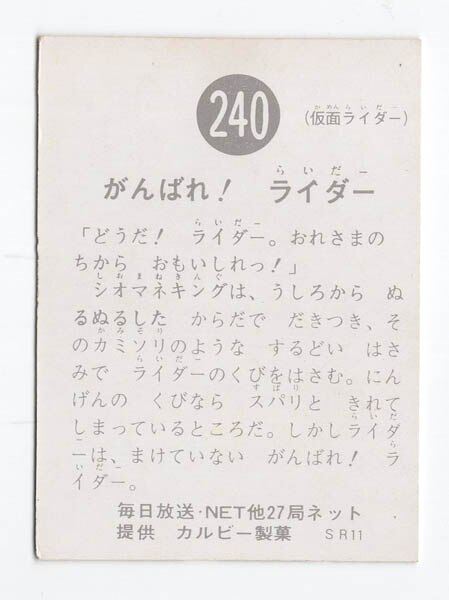 240
(仮面ライダー)
がんばれ! ライダー
「どうだ! ライダー。おれさまの
ちから おもいしれっ!」
シオマネキングは、うしろから ぬ
るぬるした からだで だきつき、そ
のカミソリのような するどい はさ
みで ライダーのくびをはさむ。にん
げんの くびなら スパリと きれて
しまっているところだ。しかしライダ
ーは、まけていない がんばれ! ラ
イダー。
毎日放送・NET他27局ネット
提供 カルビー製菓 SR11